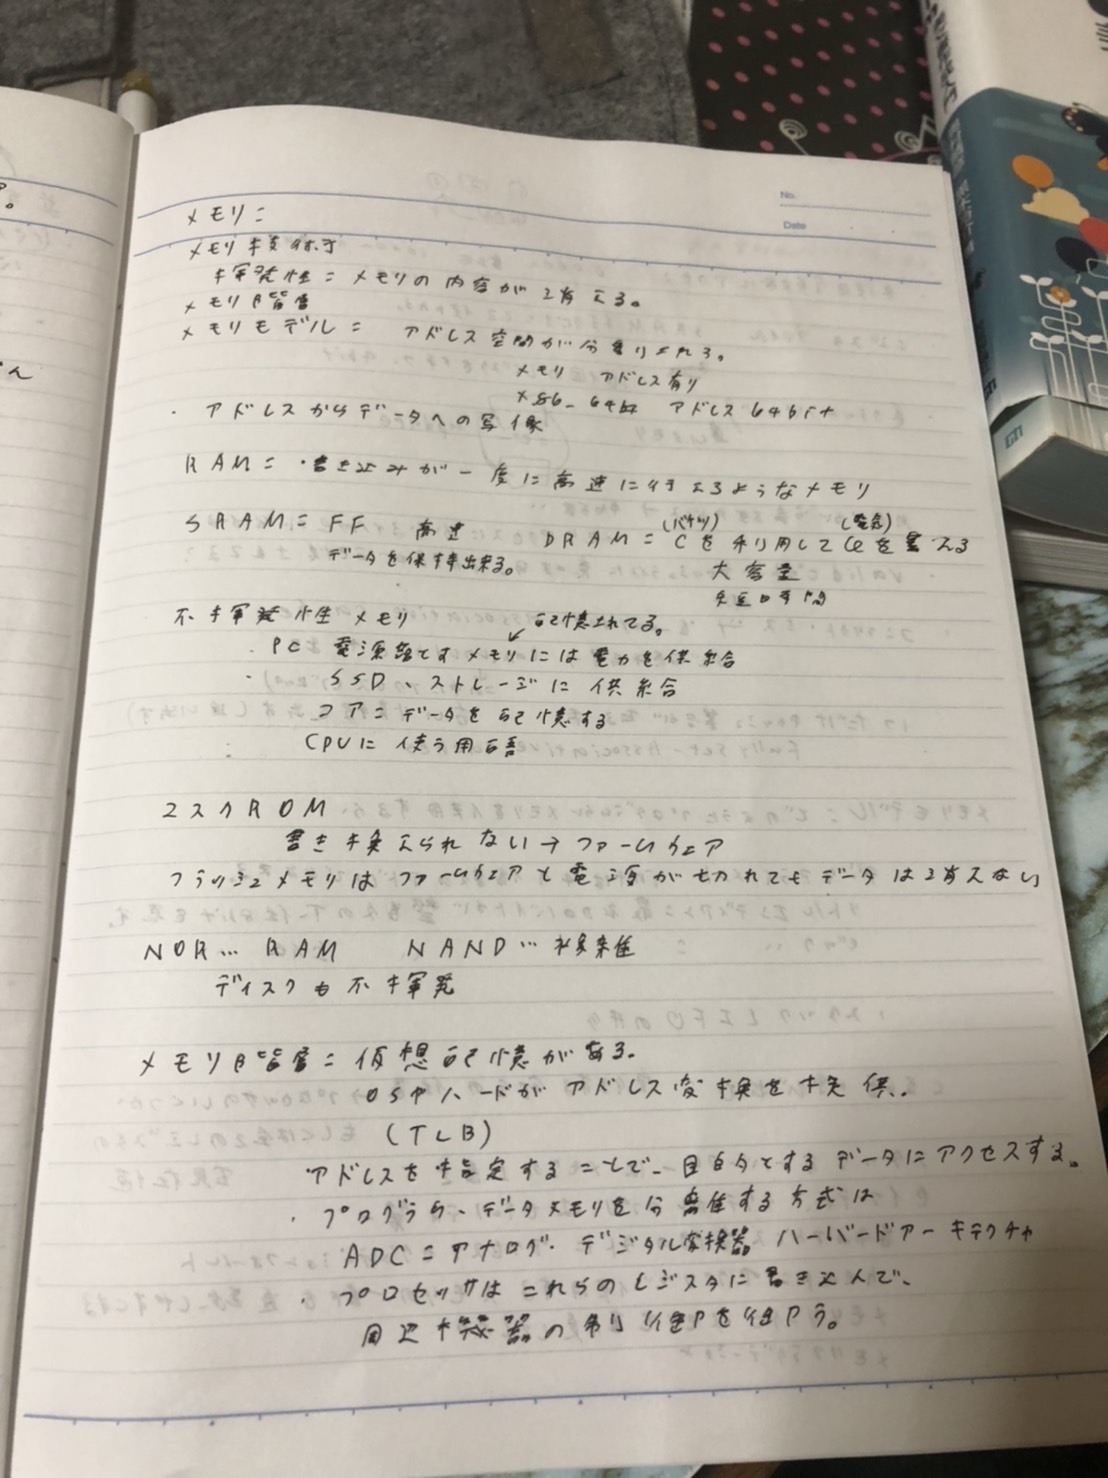 No.
Date
メモリ＝
メモリ技術
揮発性＝メモリの内容が消える。
メモリ階層
メモリモデル＝ アドレス空間が分割される。
メモリ アドレス有り
x86-64は アドレス64bit
・アドレスからデータへの写像
RAM＝・書き込みが一度に高速に行えるようなメモリ
SRAM＝FF 高速 DRAM＝Cを利用してQを蓄える
(バケツ) (電気)
データを保持出来る。 大容量
短時間
不揮発性メモリ 記憶されてる。
・PC 電源落とすメモリには電力を供給
・SSD、ストレージに供給
コア＝データを記憶する
CPUに使う用語
マスクROM
書き換えられない→ファームウェア
フラッシュメモリはファームウェアと電源が切れてもデータは消えない
NOR… RAM NAND…
ディスクも不揮発
メモリ階層＝仮想記憶がある。
OSやハードがアドレス変換を提供。
(TLB)
アドレスを指定することで、目的とするデータにアクセスする。
・プログラム、データメモリを分離する方式は
ADC＝アナログ・デジタル変換器 ハーバードアーキテクチャ
・プロセッサはこれらのレジスタに書き込んで、
周辺機器の制御を行う。